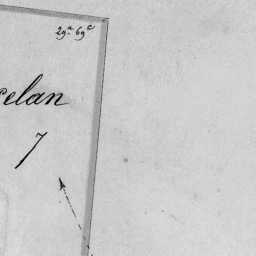 29ª 69ᶜ
elan
7